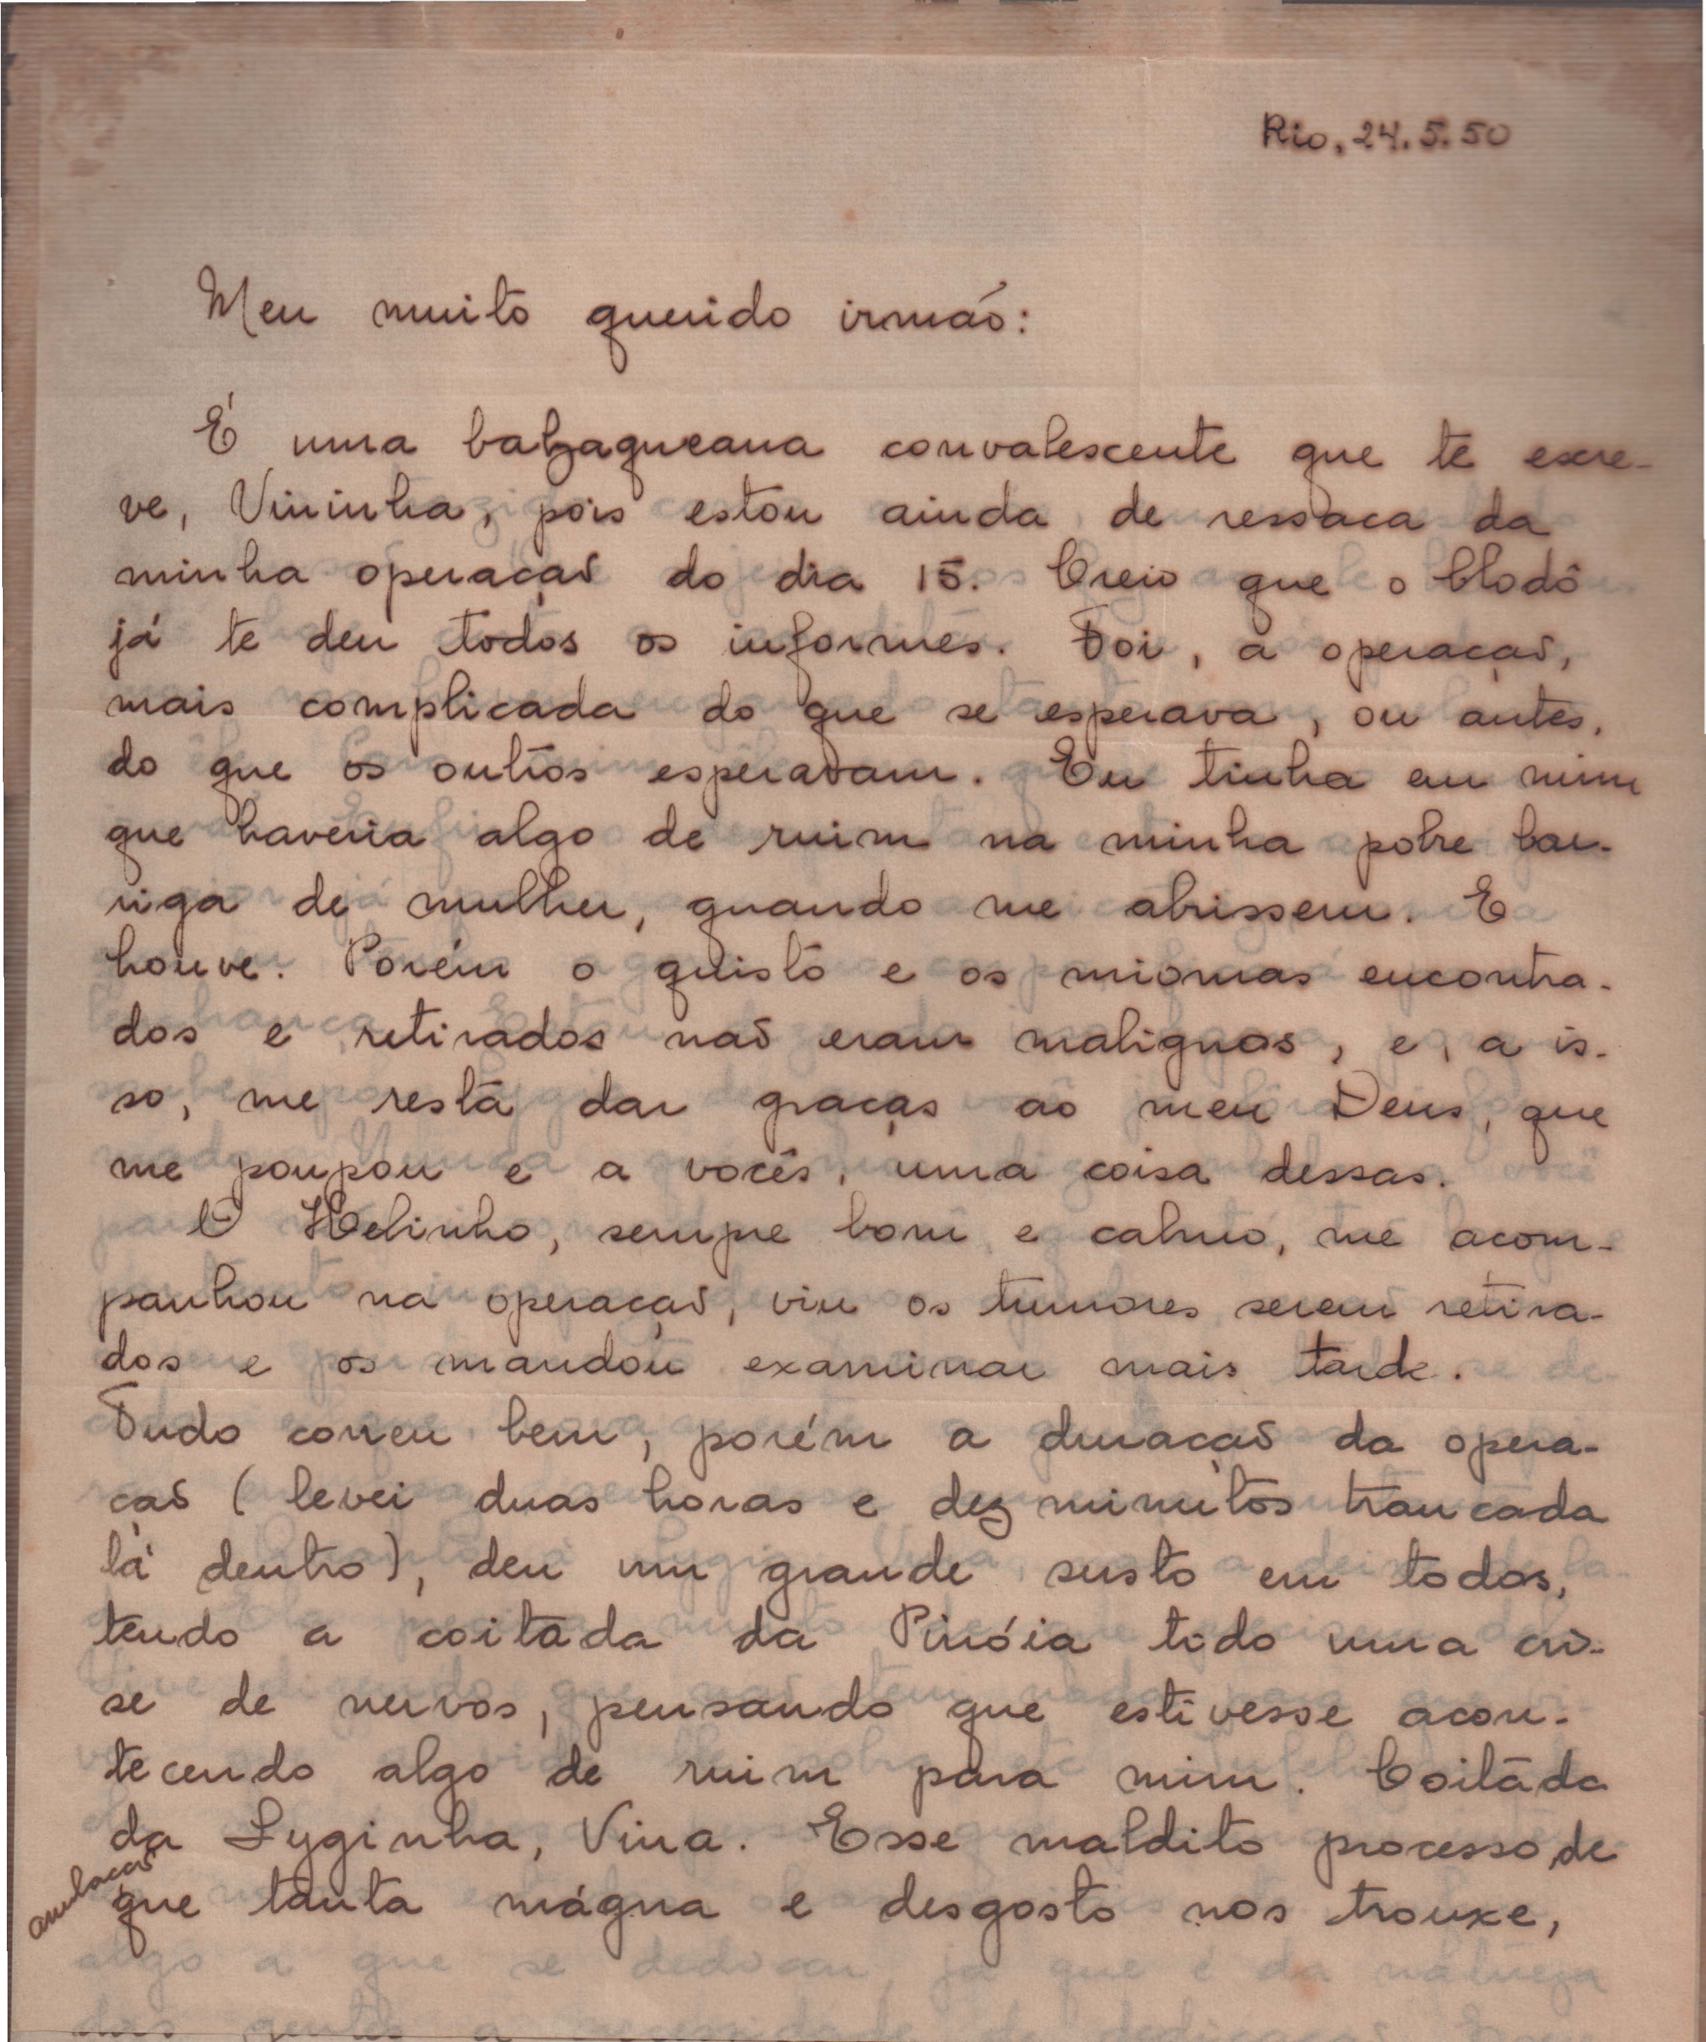 Rio, 24.5.50
Meu muito querido irmão:
É uma balzaqueana convalescente que te escre-
ve, Vininha, pois estou ainda de ressaca da
minha operação do dia 15. Creio que o Clodô
já te deu todos os informes. Foi, a operação,
mais complicada do que se esperava, ou antes,
do que os outros esperavam. Eu tinha em mim
que haveria algo de ruim na minha pobre bar-
riga de mulher, quando me abrissem. E
houve. Porém o quisto e os miomas encontra-
dos e retirados não eram malignos, e, a is-
so, me resta dar graças ao meu Deus, que
me poupou e a vocês, uma coisa dessas.
O Helinho, sempre bom e calmo, me acom-
panhou na operação, viu os tumores serem retira-
dos e os mandou examinar mais tarde.
Tudo correu bem, porém a duração da opera-
ção (levei duas horas e dez minutos trancada
lá dentro), deu um grande susto em todos,
tendo a coitada da Pinóia tido uma cri-
se de nervos, pensando que estivesse acon-
tecendo algo de ruim para mim. Coitada
da Lyginha, Vina. Esse maldito processo, de
anulação
que tanta mágua e desgosto nos trouxe,